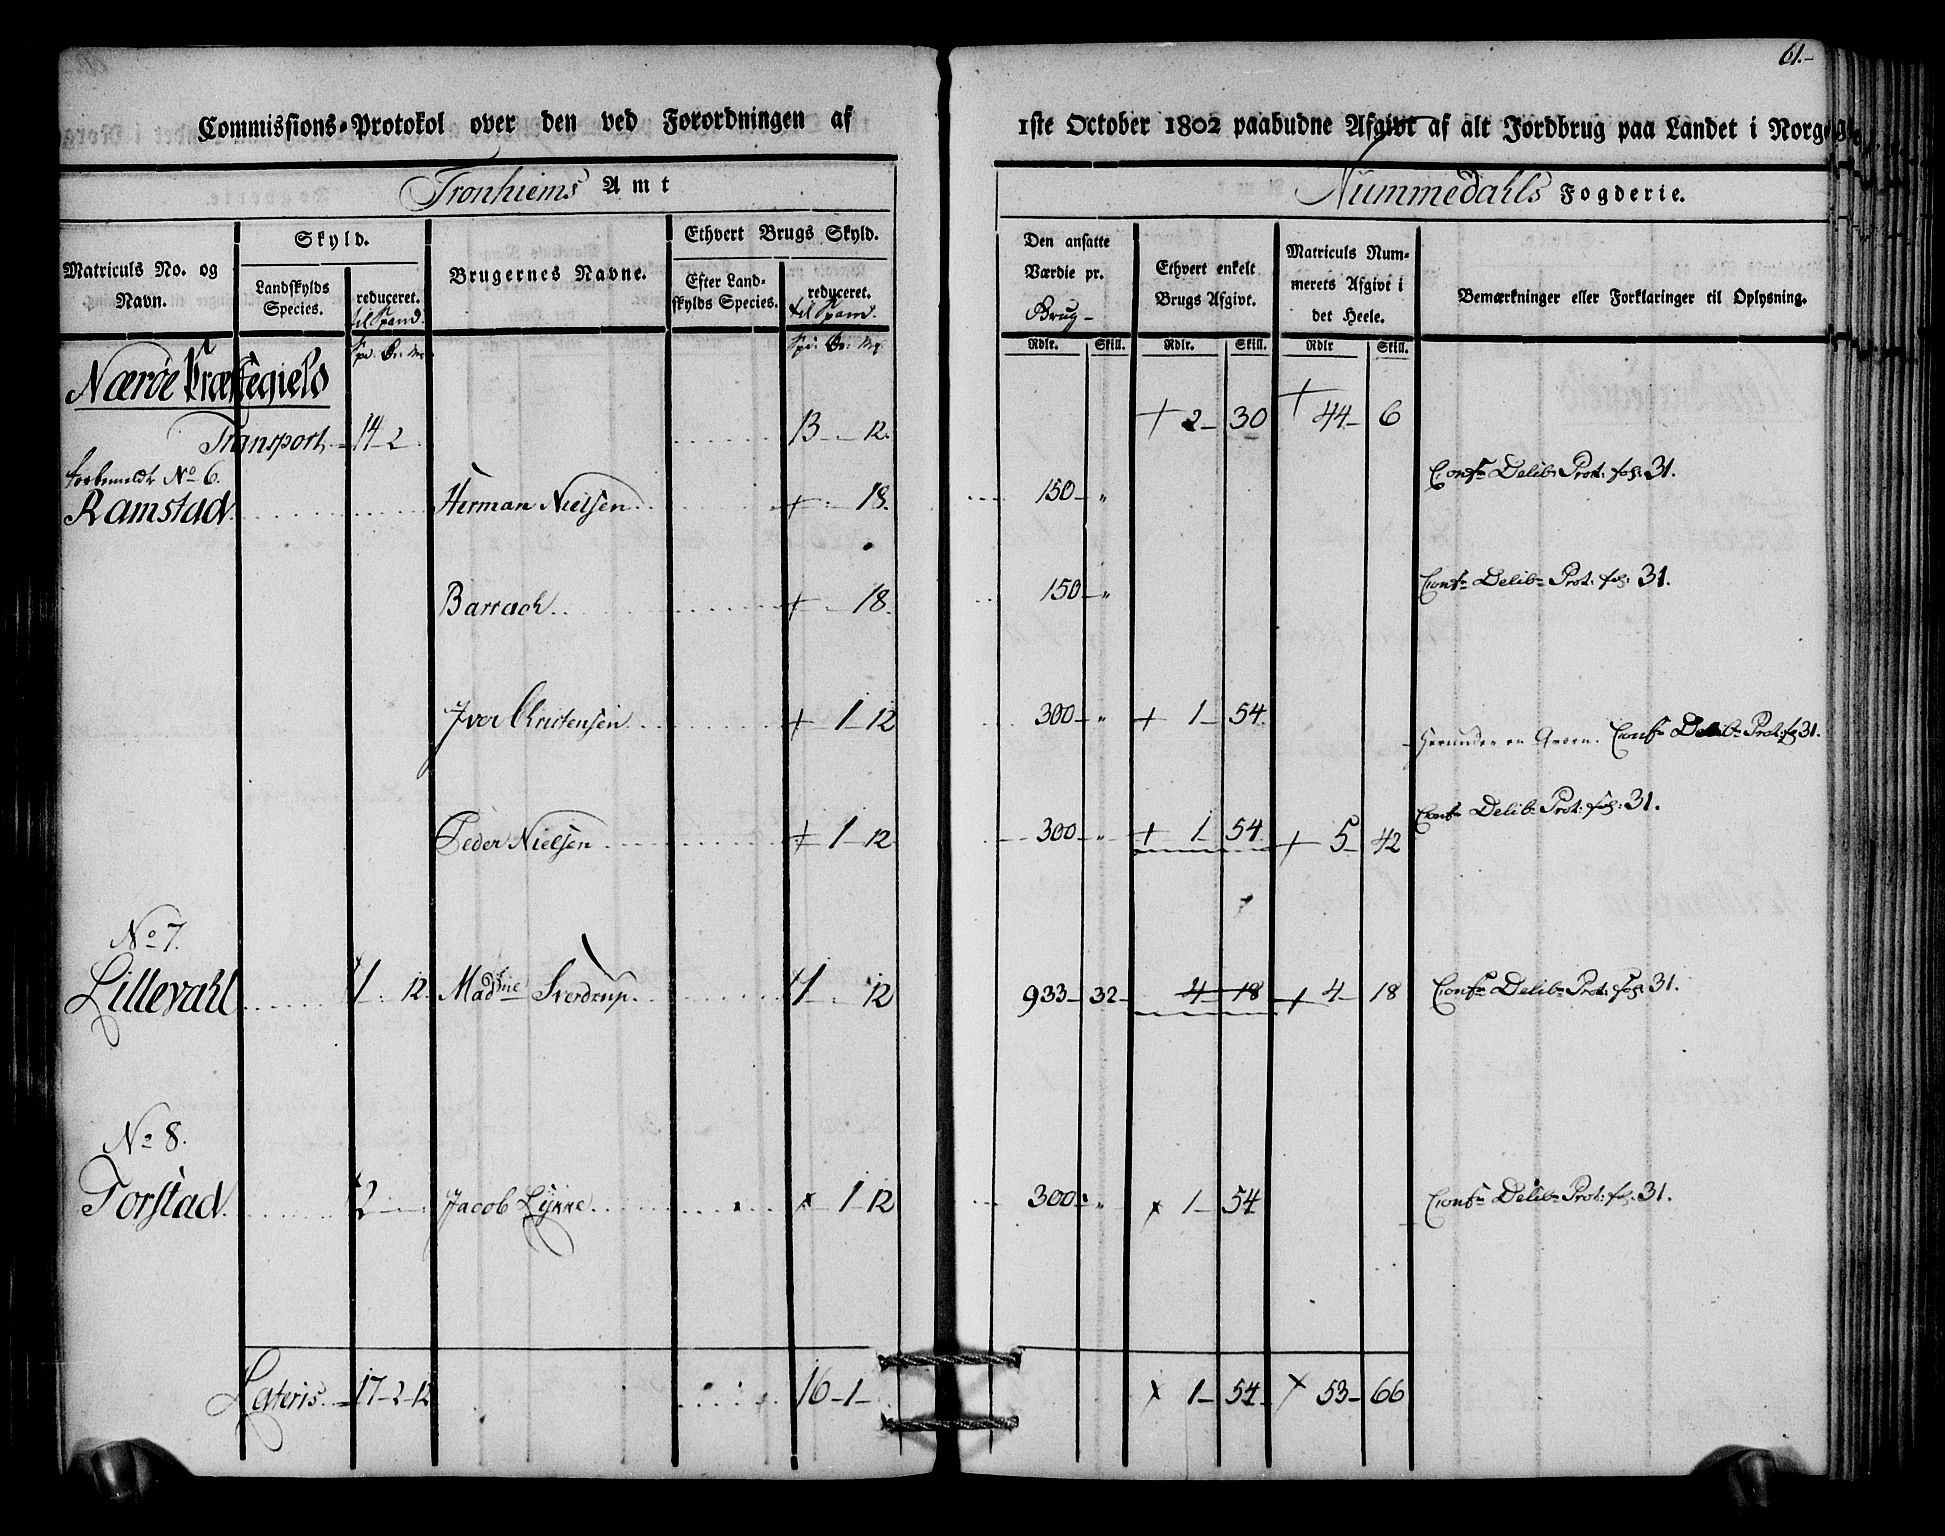 61.-
Commissions-Protokol over den ved Forordningen af
1ste October 1802 paabudne Afgivt af alt Jordbrug paa Landet i Norge
Tronhiems Amt
Nummedahls Fogderie.
Matriculs No. og Navn.
Skyld.
Landskylds Species.
reduceret. til Spand.
Brugernes Navne.
Ethvert Brugs Skyld.
Efter Landskylds Species.
reduceret. til Spand.
Den ansatte Værdie pr. Brug-
Ethvert enkelt Brugs Afgivt.
Matriculs Nummerets Afgivt i det Heele.
Bemærkninger eller Forklaringer til Oplysning.
Rdlr. Skill. Rdlr. Skill. Rdlr Skill.
Nærøe Præstegield
Transport. 14-2 13-12. + 2-30 + 44-6
No 6.
Ramstad. Herman Nielsen. + 18. 150-" Confr Delib: Prot: fol: 31.
Barrach. + 18. 150-" Confr Delib: Prot: fol: 31.
Iver Christensen + 1-12 300-" + 1-54. Herunder en Qværn. Confr Delib: Prot: fol 31.
Peder Nielsen + 1-12 300-" + 1 54. + 5-42 Confr Delib: Prot: fol: 31.
No 7.
Lillevahl 1. 12. Madme Sverdrup. 1 12 933-32- 4-18 + 4-18 Confr Delib: Prot: fol: 31.
No 8.
Torstad. 2 Jacob Lykke. x 1-12 300-" x 1-54 Confr Delib: Prot: fol: 31.
Lateris. 17-2-12 16-1- x 1-54- x 53-66